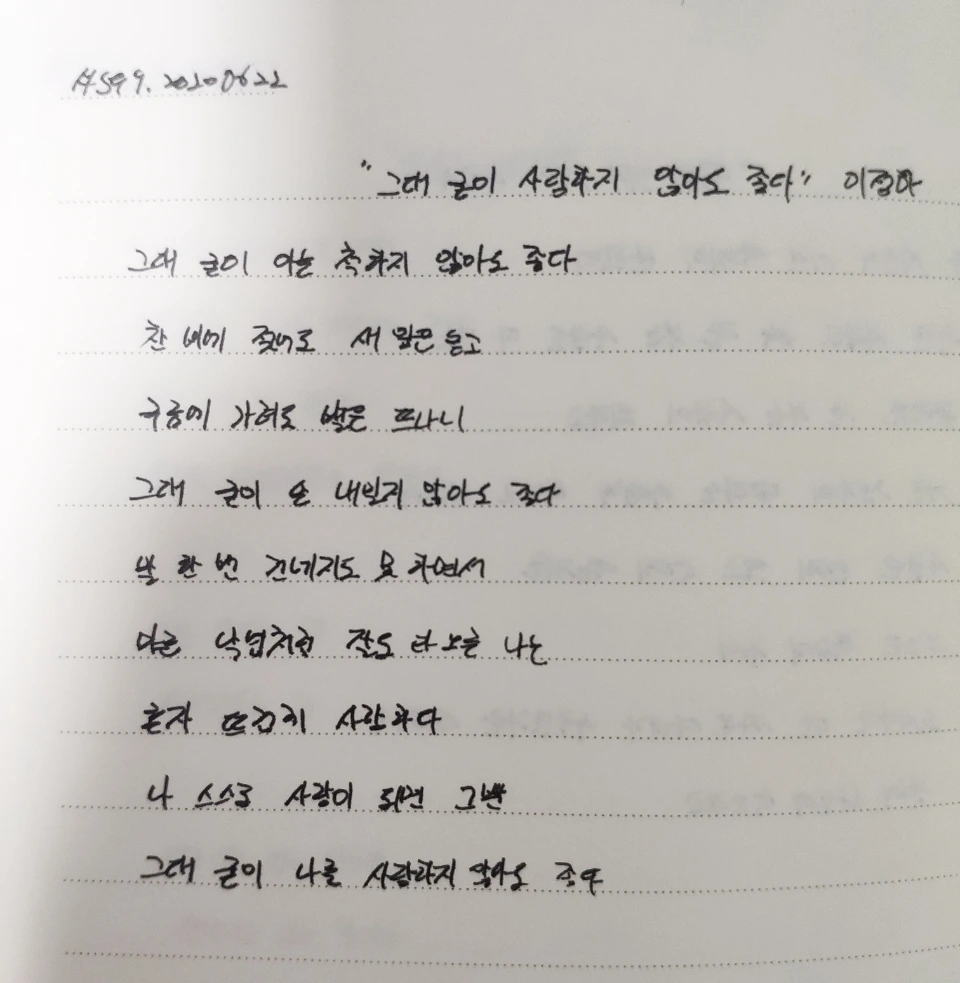 #599. 20200622
"그대 굳이 사랑하지 않아도 좋다" 이정하
그대 굳이 아는 척하지 않아도 좋다
찬 비에 젖어도 새 잎은 돋고
구름에 가려도 별은 뜨나니
그대 굳이 손 내밀지 않아도 좋다
말 한 번 건네지도 못 하면서
마른 낙엽처럼 잘도 타오른 나는
혼자 뜨겁게 사랑하다
나 스스로 사랑이 되면 그뿐
그대 굳이 나를 사랑하지 않아도 좋다